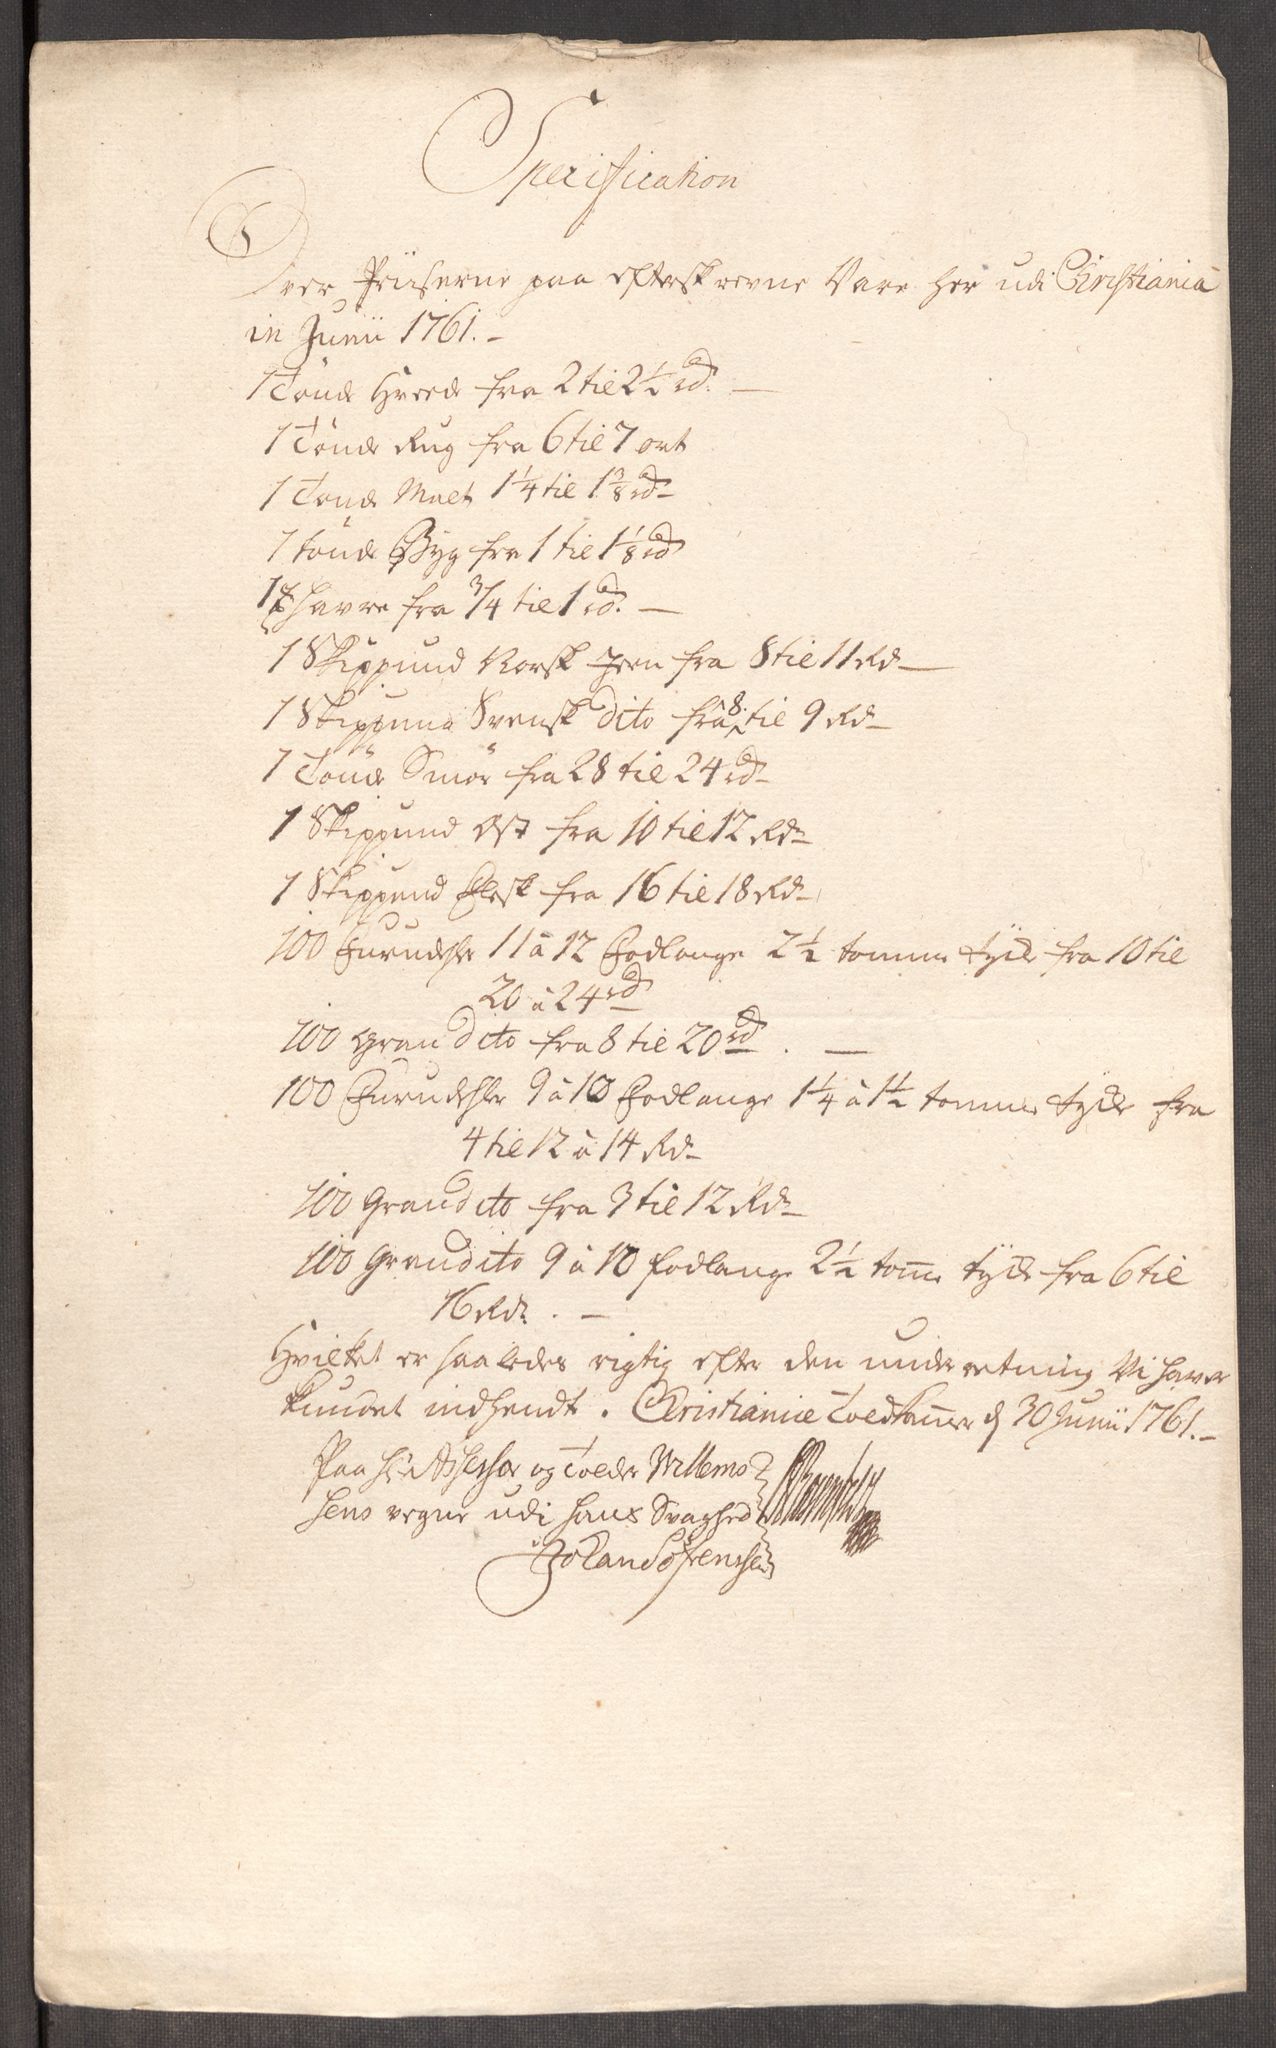 Specification
Over Priiserne paa efterskrevne Vare her udi Christiania
in Junii 1761.-
1 Tönde Hvede fra 2 til 2 1/2 rd. -
1 Tönde Rug fra 6 til 7 ort
1 Tönde Malt 1 1/4 til 1 3/8 rd
1 tönde Byg fra 1 til 1 1/8 rd
1 t havre fra 3/4 til 1 rd. -
1 Skippund Norsk Jern fra 8 til 11 Rd -
1 Skippund Svensk dito fra 8. til 9 Rd -
1 Tönde Smör fra 28 til 24 rd -
1 Skippund Ost fra 10 til 12 Rd
1 Skippund Flesk fra 16 til 18 Rd
100 Furudehler 11 à 12 Fodlange 2 1/2 tomme tyke fra 10 til
20 à 24 rd
100 Gran dito fra 8 til 20 rd. -
100 Furudehler 9 à 10 Fodlange 1 1/4 à 1 1/2 tomme tyke fra
4 til 12 à 14 Rd -
100 Gran dito fra 3 til 12 Rd -
100 Gran dito 9 à 10 fodlange 2 1/2 tome tyke fra 6 til
16 Rd. -
Hvilket er saaledes rigtig efter den underretning Vi haver
kundet indhendt. Christianiæ Toldkamer d 30 Junii 1761.-
Paa Hr Assessor og Tolder Willems
sens vegne udi hans Svaghed
Sörenssen